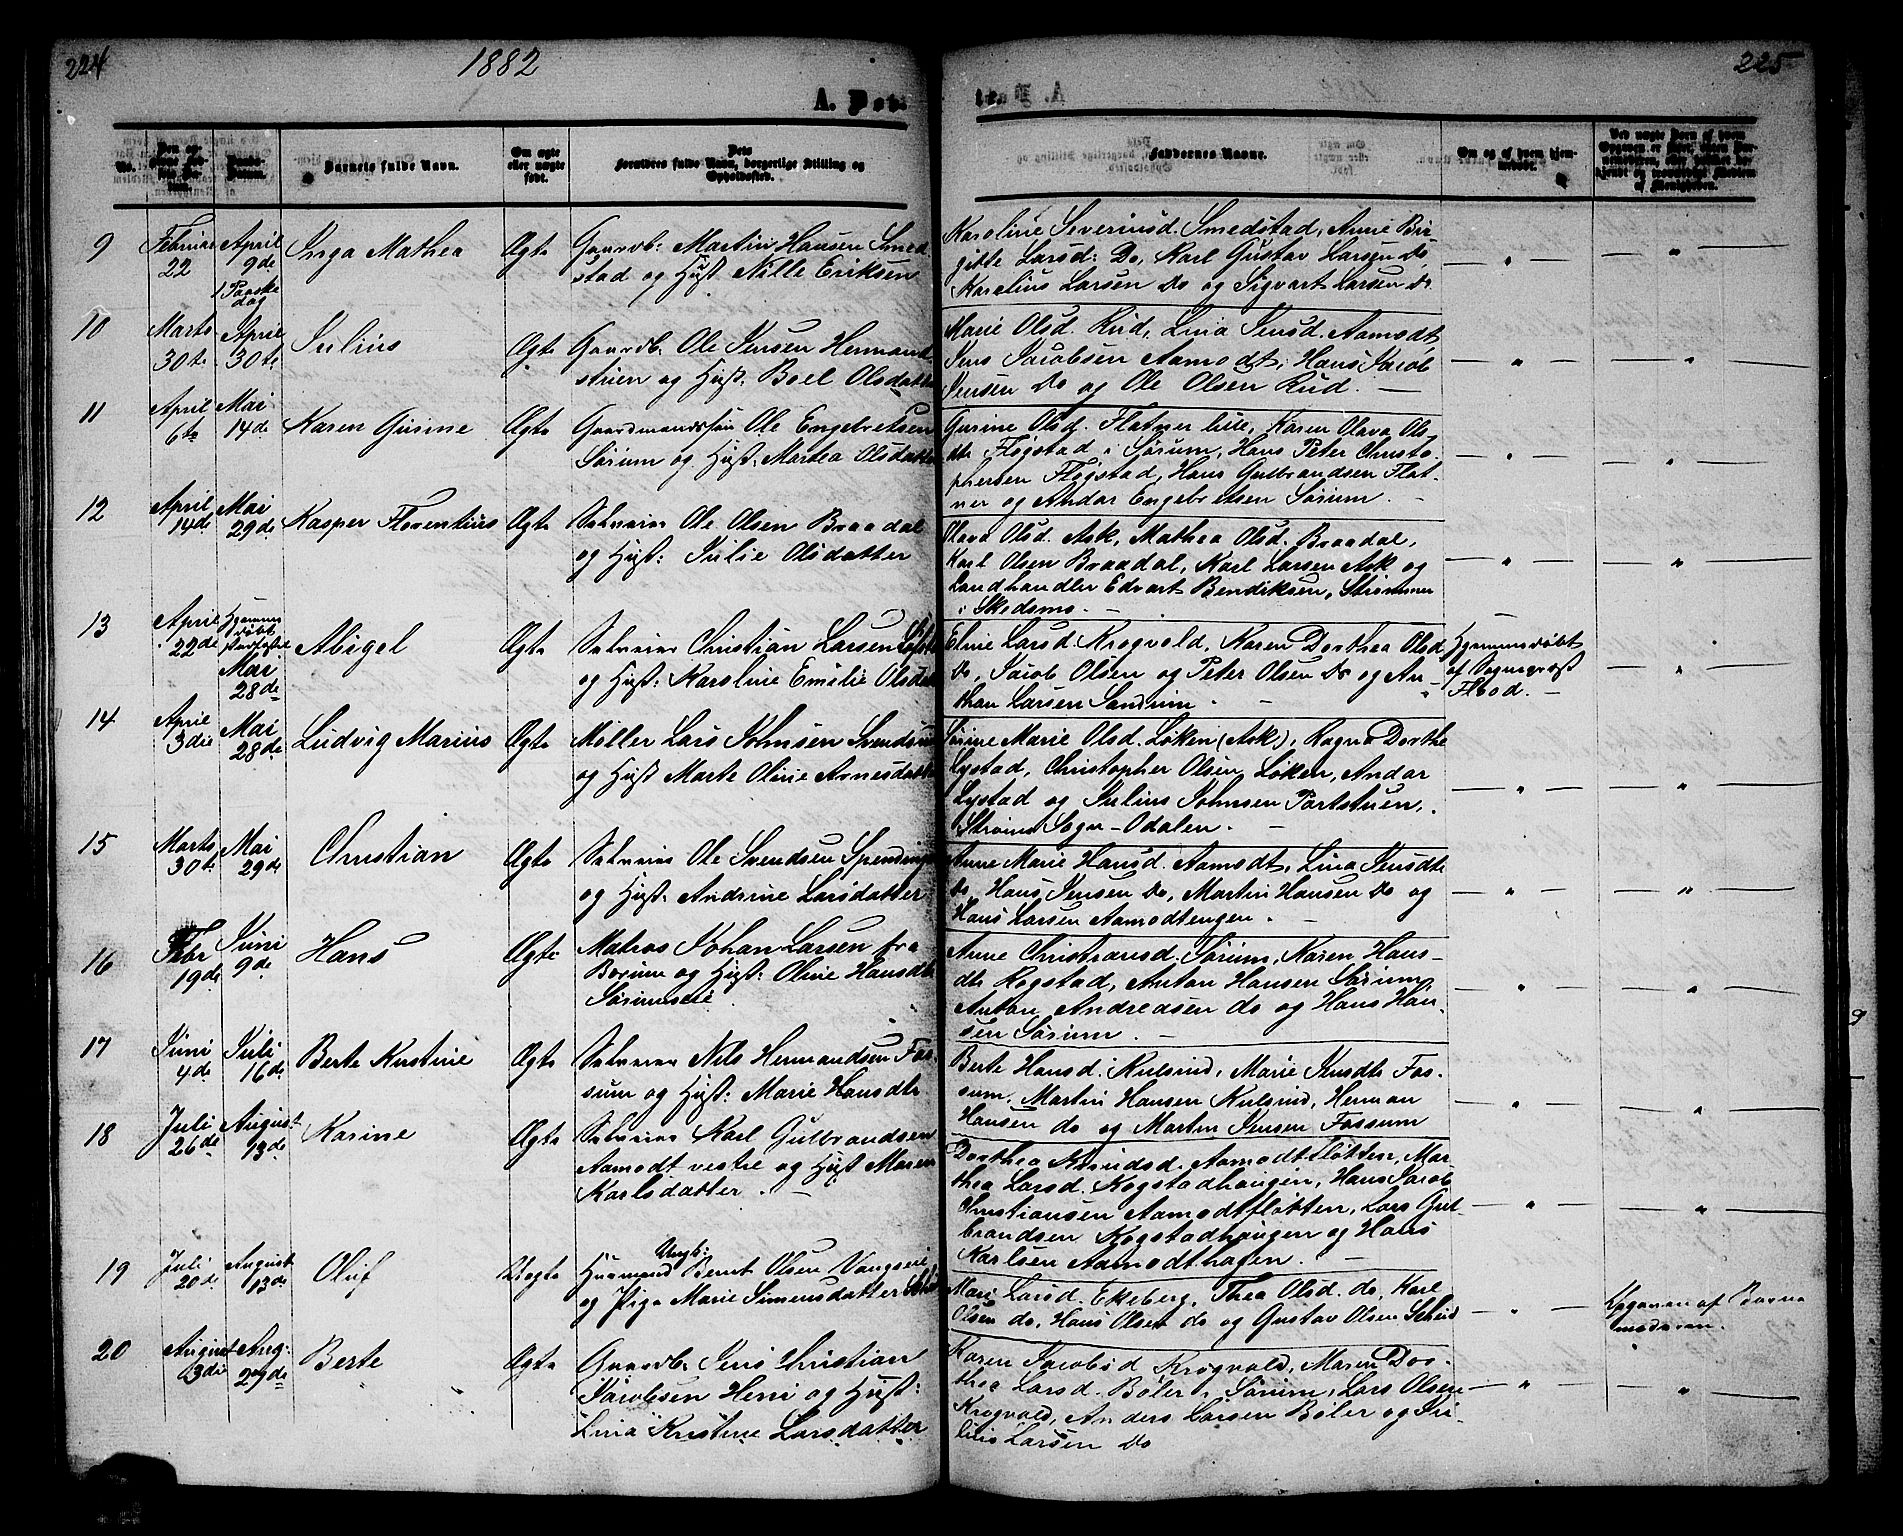 224
1882
225
A. Døb
No.
Barnets fulde Navn.
Om ægte eller uægte født.
Dets Forældres fulde Navn, borgerlige Stilling og Opholdssted.
Faddernes Navne.
Om og af hvem hjemmedøbt.
9
Februar 22
April 9de 1 Paaskedag
Inga Mathea
Ægte
Gaardb. Martin Hansen Smedstad og Hust. Nille Eriksen
Karoline Severinsd. Smedstad, Anne Birgitte Larsd: Do, Karl Gustav Larsen Do
Karelius Larsen Do og Sigvart Larsen Do
10
Marts 30te
April 30te
Julius
Ægte
Gaardb. Ole Jensen Hermanstuen og Hust. Boel Olsdatter
Marie Olsd. Rud, Lina Jensd. Aamodt,
Jens Jacobsen Aamodt, Hans Jacob
Jensen Do og Ole Olsen Rud.
11
April 6te
Mai 14de
Karen Gusine
Ægte
Gaardmandssøn Ole Engebretsen
Sørum og Hust. Martea Olsdatter
Gurine Olsd. Flatner lille, Karen Olava Olsdtr Fløgstad i Sørum, Hans Peter Christophersen Fløgstad, Hans Gulbrandsen Flatner og Andar Engebretsen Sørum.
12
April 14de
Mai 29de
Kasper Florentius
Ægte
Selveier Ole Olsen Braadal
og Hust: Julie Olsdatter
Olava Olsd. Ask, Mathea Olsd. Braadal,
Karl Olsen Braadal, Karl Larsen Ask og
Landhandler Edvart Bendiksen, Strømmen
i Skedsmo.
13
April 22de
Hjemmedøbt Mai 28de
Abigel
Ægte
Selveier Christian Larsen
og Hust: Karoline Emelie Olsdatter
Eline Larsd. Krogvold, Karen Dorthea Olsd
Do, Jacob Olsen og Peter Olsen Do og Anthon Larsen Sandum
Hjemmedøbt
af Sognepræst
Flood.
14
April 3die
Mai 28de
Ludvig Marius
Ægte
Møller Lars Johnsen
og Hust Marte Oline Arnesdatter
Sørine Marie Olsd. Løken (Ask), Ragna Dorthe
Lystad, Christopher Olsen Løken, Andar
Lystad og Julius Johnsen Partstuen,
Strøms Sogn - Odalen.
15
Marts 30te
Mai 29de
Christian
Ægte
Selveier Ole Svendsen
og Hust: Andrine Larsdatter
Anne Marie Hansd. Aamodt, Lina Jensdtr
Do, Hans Jensen Do, Martin Hansen Do og
Hans Larsen Aamodtengen.
16
Febr 19de
Juni 9de
Hans
Ægte
Matros Johan Larsen fra
Borum og Hust: Oline Hansdtr
Sørumseie
Anne Christiansd. Sørum, Karen Hansdtr Rogstad, Anton Hansen Sørum,
Anton Andreasen do og Hans Hansen Sørum.
17
Juni 4de
Juli 16de
Berte Kristine
Ægte
Selveier Nils Hermandsen Fossum og Hust: Marie Hansdtr.
Berte Hansd. Kulsrud, Marie Jensdtr Fossum, Martin Hansen Kulsrud, Herman
Hansen do og Morten Jensen Fossum
18
Juli 26de
August 13de
Karine
Ægte
Selveier Karl Gulbrandsen
Aamodt vestre og Hust Maren
Karlsdatter.
Dorthea Knudsd. Aamodtfløtten, Marthea Larsd. Kogstadhaugen, Hans Jacob
Christiansen Aamodtfløtten, Lars Gulbrandsen Kogstadhaugen og Hans
Karlsen Aamodthagen.
19
Juli 20de
August 13de
Oluf
Uægte
Ungk: Husmand Bernt Olsen Vangseie
og Pige Marie Simensdatter
Mari Larsd. Ekeberg, Thea Olsd. do, Karl
Olsen do, Hans Olsen do og Gustav Olsen
Opgaven af Barnemoderen.
20
August 3die
Aug: 27de
Berte
Ægte
Gaardb. Jens Christian
Jacobsen Herri og Hust:
Lina Kristine Larsdatter
Karen Jacobsd Krogvold, Maren Dorthea Larsd. Bøler i Sørum, Lars Olsen
Krogvold, Anders Larsen Bøler og Julius Larsen Do